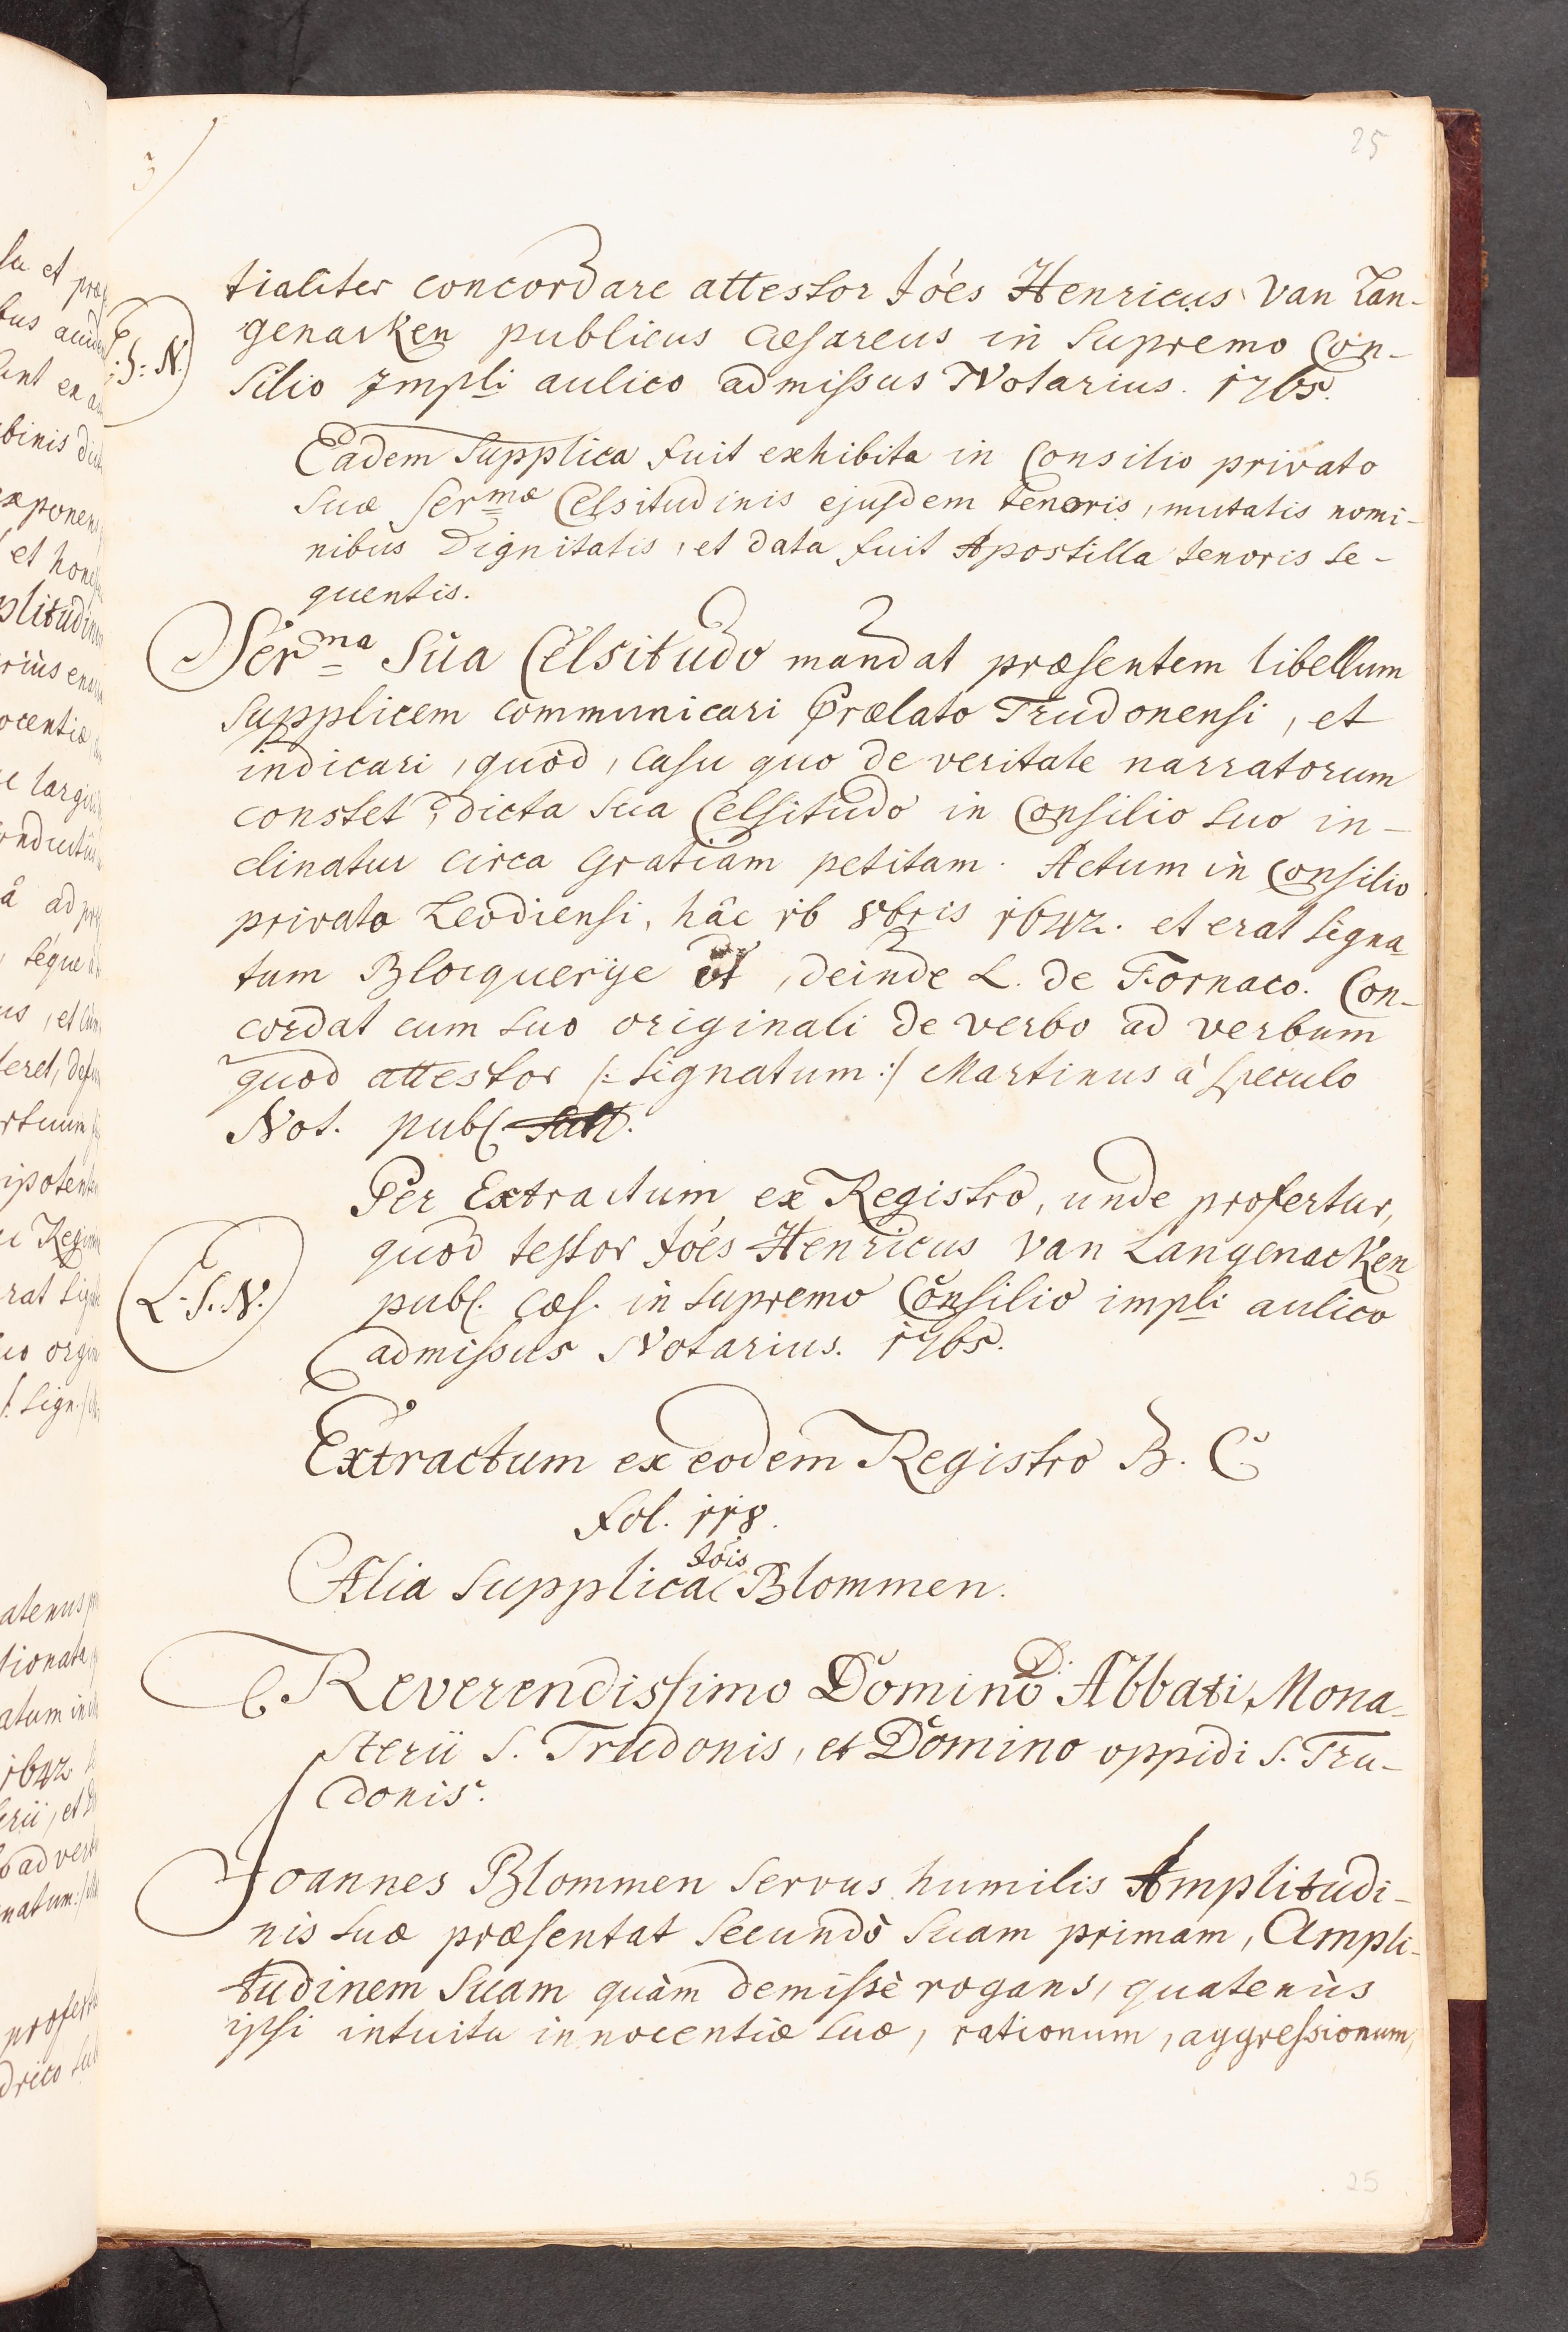 25
3
tialiter concordare attestor Jóes Henricus Van Lan-
genacken publicus Cæsareus in Supremo Con-
silio Impli aulico admissus Notarius. 1765.
L: S: N.
Eadem Supplica fuit exhibita in Consilio privato
suæ Sermæ Celsitudinis ejusdem tenoris, mutatis nomi-
nibus Dignitatis, et data fuit Apostilla tenoris se-
quentis.
Serma Sua Celsitudo mandat præsentem libellum
supplicem communicari Prælato Trudonensi, et
indicari, quòd, casu quo de veritate narratorum
constet, dicta sua Celsitudo in Consilio suo in-
clinatur circa Gratiam petitam. Actum in Consilio
privato Leodiensi, hâc 16 8bris 1642. et erat signa-
tum Blocquerije et, deinde L. de Fornaco. Con-
cordat cum suo originali de verbo ad verbum
quod attestor /: signatum :/ Martinus à Speculo
Not. publ.
Per Extractum ex Registro, unde profertur,
quod testor Jóes Henricus Van Langenacken
publ. Cæs. in Supremo Consilio impli aulico
admissus Notarius. 1765.
L. S. N.
Extractum ex eodem Registro B. C
fol. 118.
Alia Supplica Jóis Blommen.
Reverendissimo Domino D. Abbati Mona-
sterii S. Trudonis, et Domino oppidi S. Tru-
donis.
Joannes Blommen servus humilis Amplitudi-
nis suæ præsentat secundò suam primam, Ampli-
tudinem Suam quàm demissè rogans, quatenùs
ipsi intuitu innocentiæ suæ, rationum, aggressionum,
25